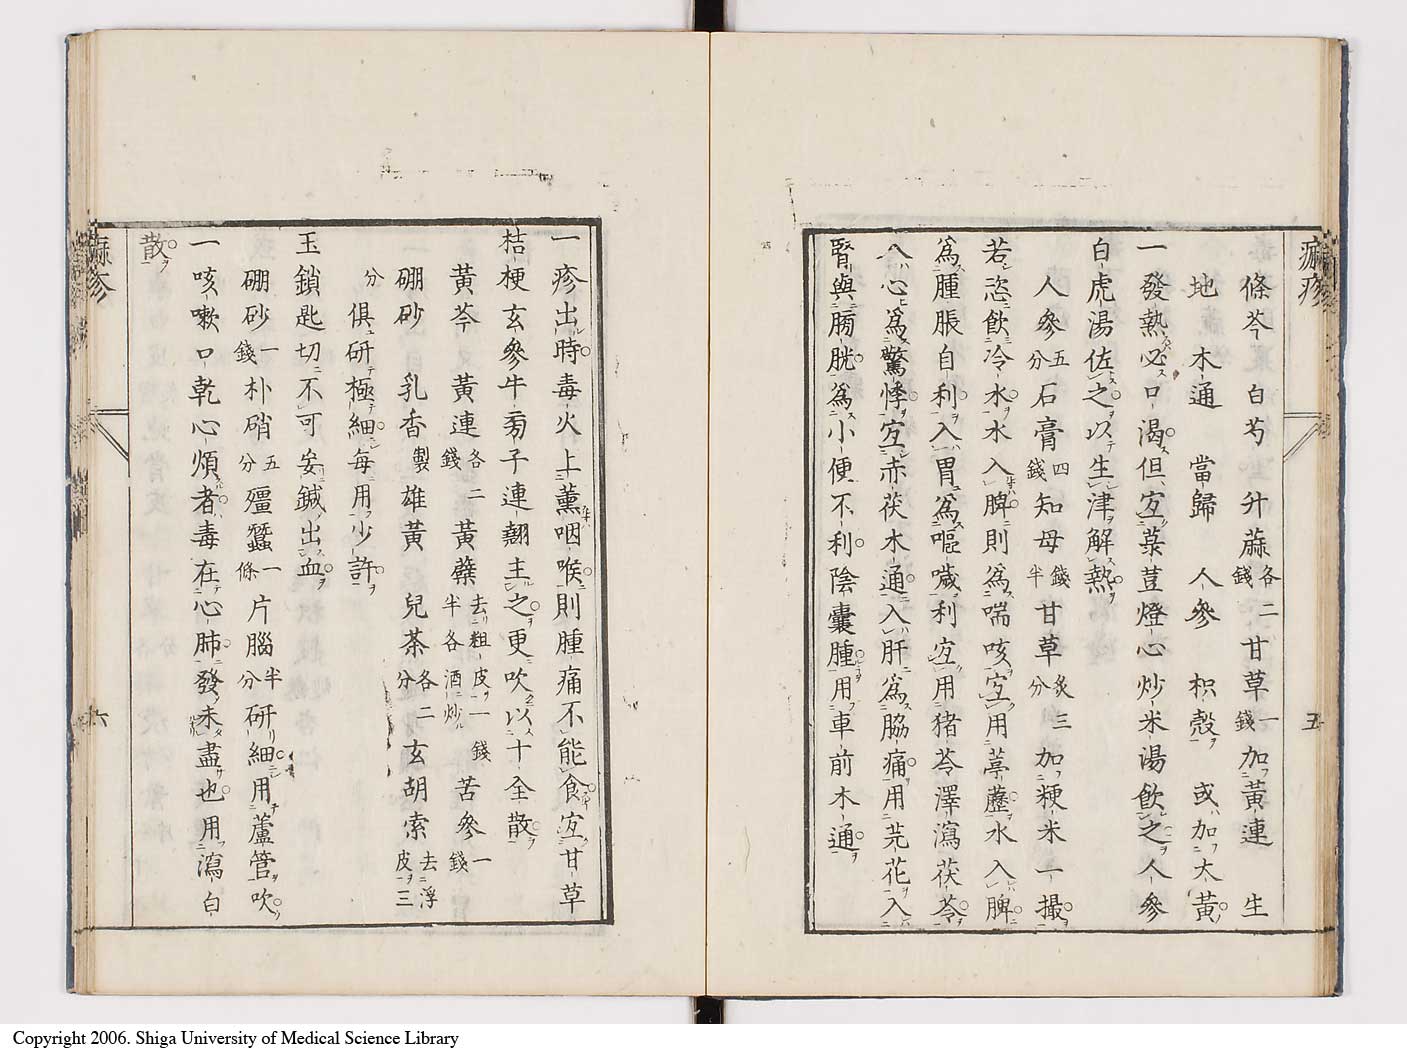 麻疹 五
條芩 白芍 升蔴各二錢 甘草一錢 加黃連 生
地 木通 當歸 人參 枳殼 或加大黃
一發熱必口渴但宜菉荳燈心炒米湯飲之人參
白虎湯佐之以生津解熱
人參五分 石膏四錢 知母錢半 甘草炙三分 加粳米一撮
若恣飲冷水水入脾則為喘咳宜用葶藶水入脾
為腫脹自利入胃為嘔噦利宜用猪苓澤瀉茯苓
入心為驚悸宜赤茯木通入肝為脇痛用芫花入
腎與膀胱為小便不利陰囊腫用車前木通
一疹出時毒火上薰咽喉則腫痛不能食宜甘草
桔梗玄參牛蒡子連翹主之更吹以十全散
黃芩 黃連各二錢 黃蘗去粗皮一錢半各酒炒 苦參一錢
硼砂 乳香製 雄黃 兒茶各二分 玄胡索去浮皮三
分 俱研極細每用少許
玉鎖匙切不可妄鍼出血
硼砂一錢 朴硝五分 殭蠶一條 片腦半分 研細用蘆管吹
一咳嗽口乾心煩者毒在心肺發未盡也用瀉白
散
麻疹 六
Copyright 2006. Shiga University of Medical Science Library